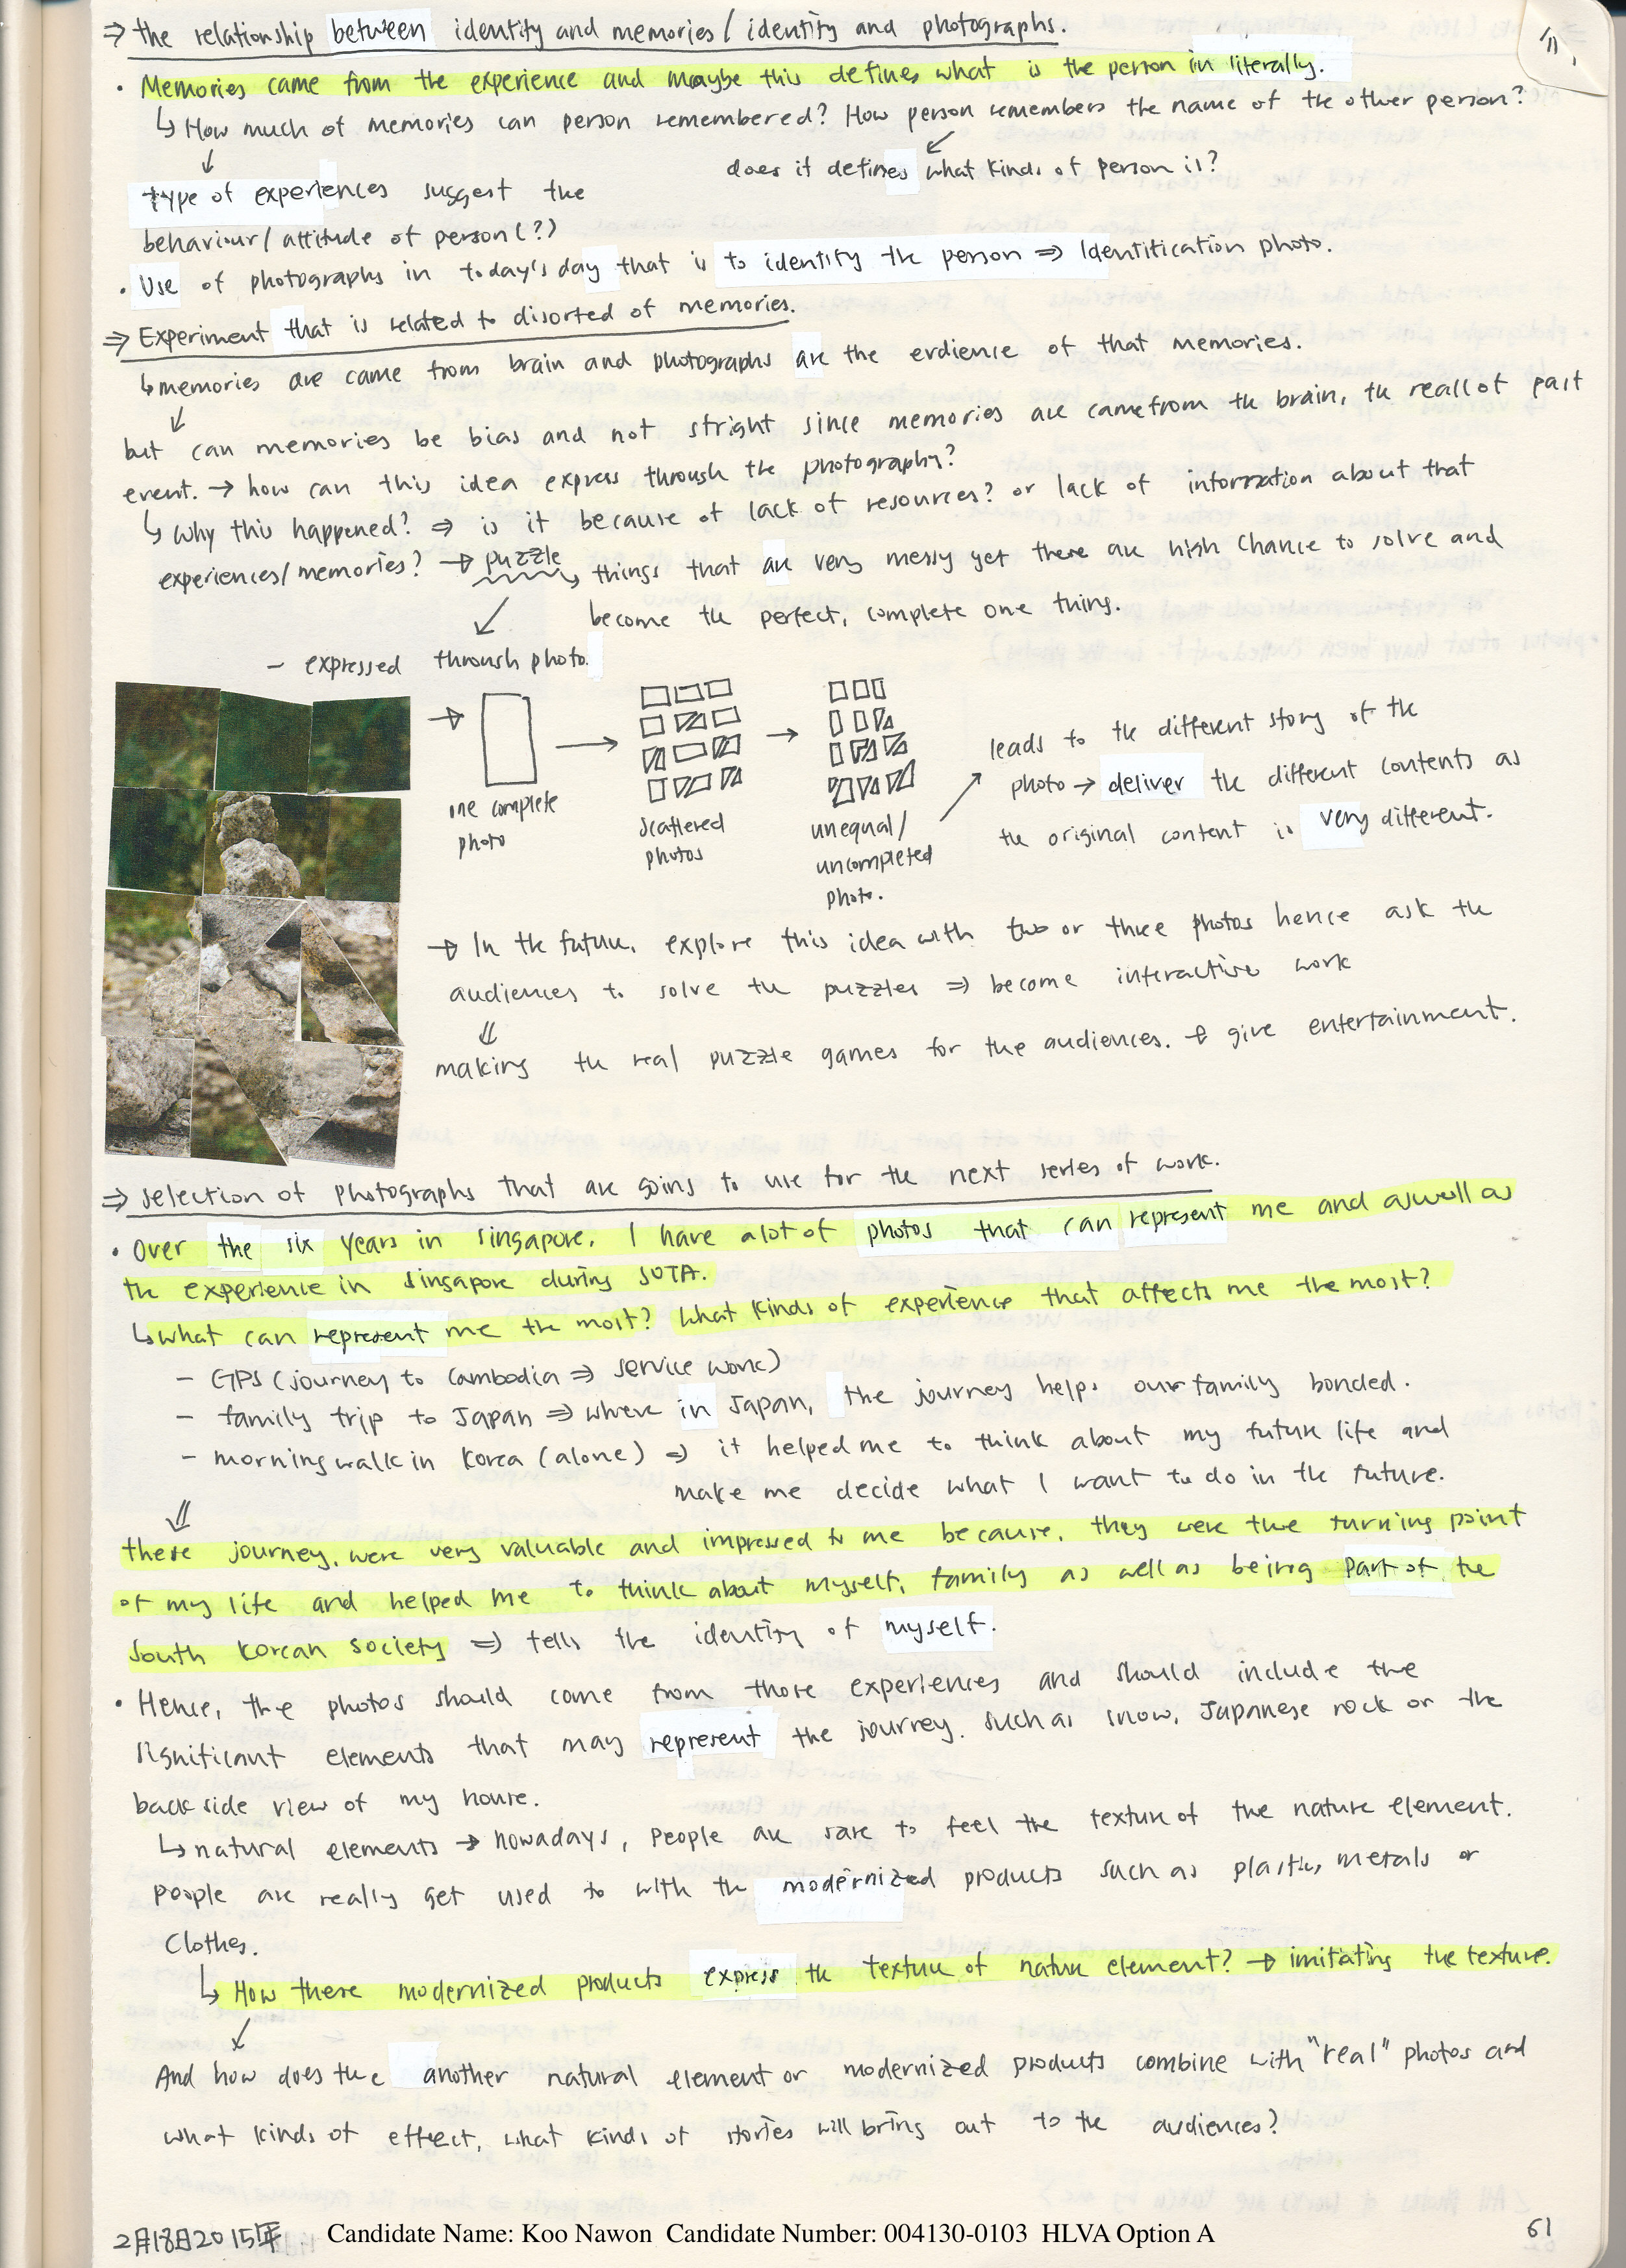 ⇒ the relationship between identity and memories / identity and photographs.
• Memories came from the experience and maybe this defines what is the person in literally.
↳ How much of memories can person remembered? How person remembers the name of the other person?
↓ ↙
does it defines what kinds of person is?
type of experiences suggest the
behaviour / attitude of person (?)
• Use of photographs in today's day that is to identify the person ⇒ Identification photo.
⇒ Experiment that is related to disorted of memories.
↳ memories are came from brain and photographs are the erdience of that memories.
↓
but can memories be bias and not stright since memories are came from the brain, the reall of past
event. → how can this idea express through the photography?
↳ Why this happened? ⇒ is it because of lack of resources? or lack of information about that
experiences / memories? → puzzle things that are very messy yet there are high chance to solve and
become the perfect, complete one thing.
- expressed through photo.
→ one complete
photo
→ scattered
photos
→ unequal /
uncompleted
photo.
leads to the different story of the
photo → deliver the different contents as
the original content is very different.
→ In the future, explore this idea with two or three photos hence ask the
audiences to solve the puzzles ⇒ become interactive work
⇓
making the real puzzle games for the audiences. → give entertainment.
⇒ selection of photographs that are going to use for the next series of work.
• Over the six years in singapore, I have a lot of photos that can represent me and aswell as
the experience in singapore during SOTA.
↳ what can represent me the most? What kinds of experience that affects me the most?
- GPS (journey to Cambodia ⇒ service work)
- family trip to Japan ⇒ where in Japan, the journey helps our family bonded.
- morning walk in Korea (alone) ⇒ it helped me to think about my future life and
make me decide what I want to do in the future.
⇓
these journey, were very valuable and impressed to me because, they were the turning point
of my life and helped me to think about myself, family as well as being part of the
South Korean society ⇒ tells the identity of myself.
• Hence, the photos should come from those experiences and should include the
significant elements that may represent the journey. such as snow, Japanese rock or the
back side view of my house.
↳ natural elements → nowadays, people are rare to feel the texture of the nature element.
people are really get used to with the modernized products such as plastics, metals or
Clothes.
↳ How these modernized products express the texture of nature element? → imitating the texture.
↙
And how does the another natural element or modernized products combine with "real" photos and
what kinds of effect, what kinds of stories will bring out to the audiences?
2月18日2015年 Candidate Name: Koo Nawon Candidate Number: 004130-0103 HLVA Option A 61